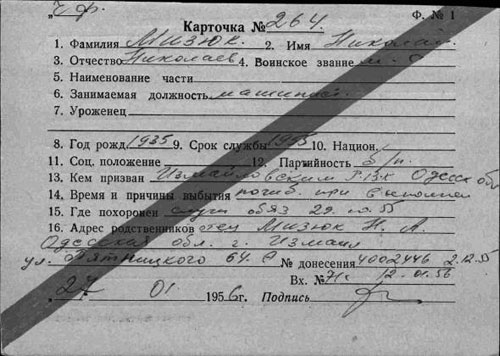 „Ч.ф.
Ф. № 1
Карточка № 264.
1. Фамилия Мизюк. 2. Имя Николай
3. Отчество Николаев 4. Воинское звание
5. Наименование части
6. Занимаемая должность машинист
7. Уроженец
8. Год рожд 1935 9. Срок службы 1955 10. Национ.
11. Соц. положение 12. Партийность б/п.
13. Кем призван Измайловским РВК Одесск обл
14. Время и причины выбытия погиб при выполнен
15. Где похоронен служ обяз 29. 10. 55
16. Адрес родственников отец Мизюк Н. А.
Одесская обл. г. Измаил
ул. Пятницкого 64.
№ донесения 4002446 2.12.55
Вх. № 12-01.56
27 01 1956 г. Подпись